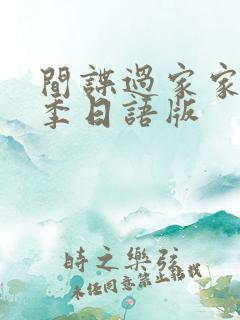 間諜過家家
季日語版
時之樂弦
未任同意禁止轉載